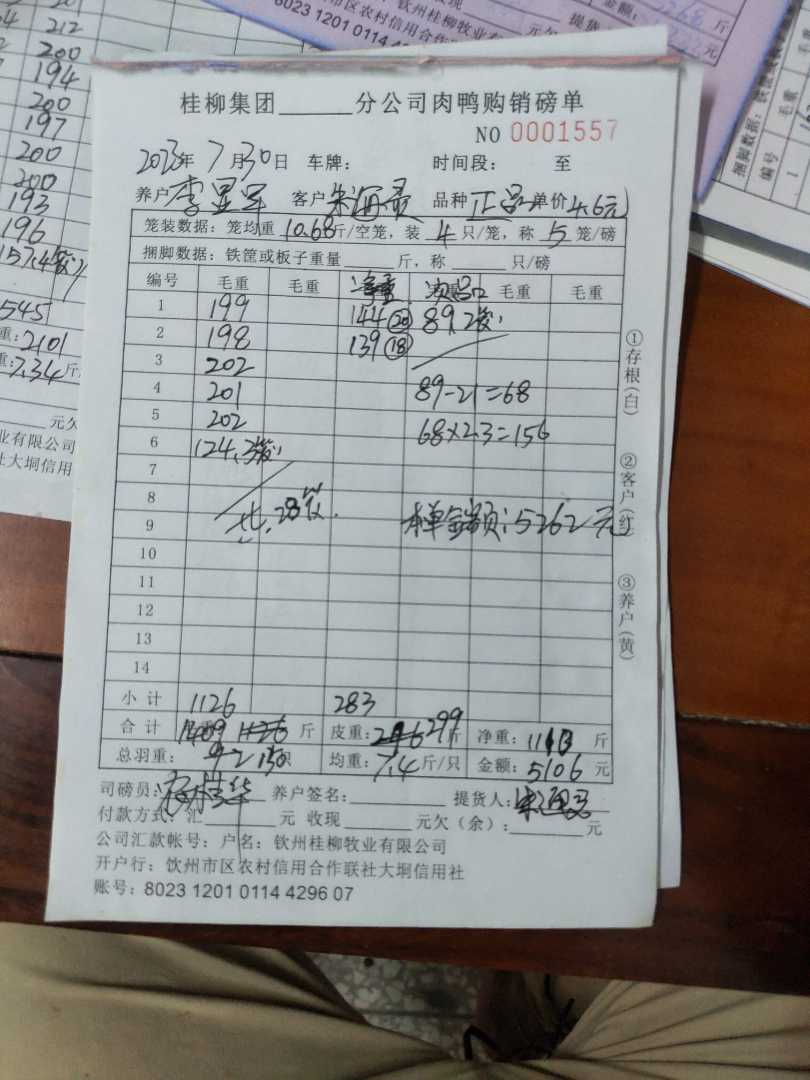 8023 1201 0114 4
市区农村信用合
钦州桂柳牧业有
提货
金额:
斤
元
212
200
194
200
197
200
200
193
196
545
重:2101
重:7.34斤
元欠
业有限公司
社大垌信用
捆脚数据:
编号
毛重
1
桂柳集团______分公司肉鸭购销磅单
NO 0001557
年7月30日 车牌: 时间段: 至
养户 客户 品种 正品 单价4.6元
笼装数据:笼均重10.68斤/空笼,装4只/笼,称5笼/磅
捆脚数据:铁筐或板子重量______斤,称______只/磅
编号 毛重 毛重 净重 次品 毛重 毛重
1 199 144 20 89.2
2 198 139 18
3 202
4 201 89-21=68
5 202 68×2.3=156
6 124.3
7
8
9 共.28 本单金额:5262元
10
11
12
13
14
小计 1126 283
合计 1409 斤 皮重:299斤 净重:1110斤
总羽重: 150只 均重:7.4斤/只 金额:5106元
司磅员: 养户签名:______ 提货人:
付款方式:汇______元 收现______元欠(余):______元
公司汇款帐号:户名:钦州桂柳牧业有限公司
开户行:钦州市区农村信用合作联社大垌信用社
账号:8023 1201 0114 4296 07
①存根(白)
②客户(红)
③养户(黄)